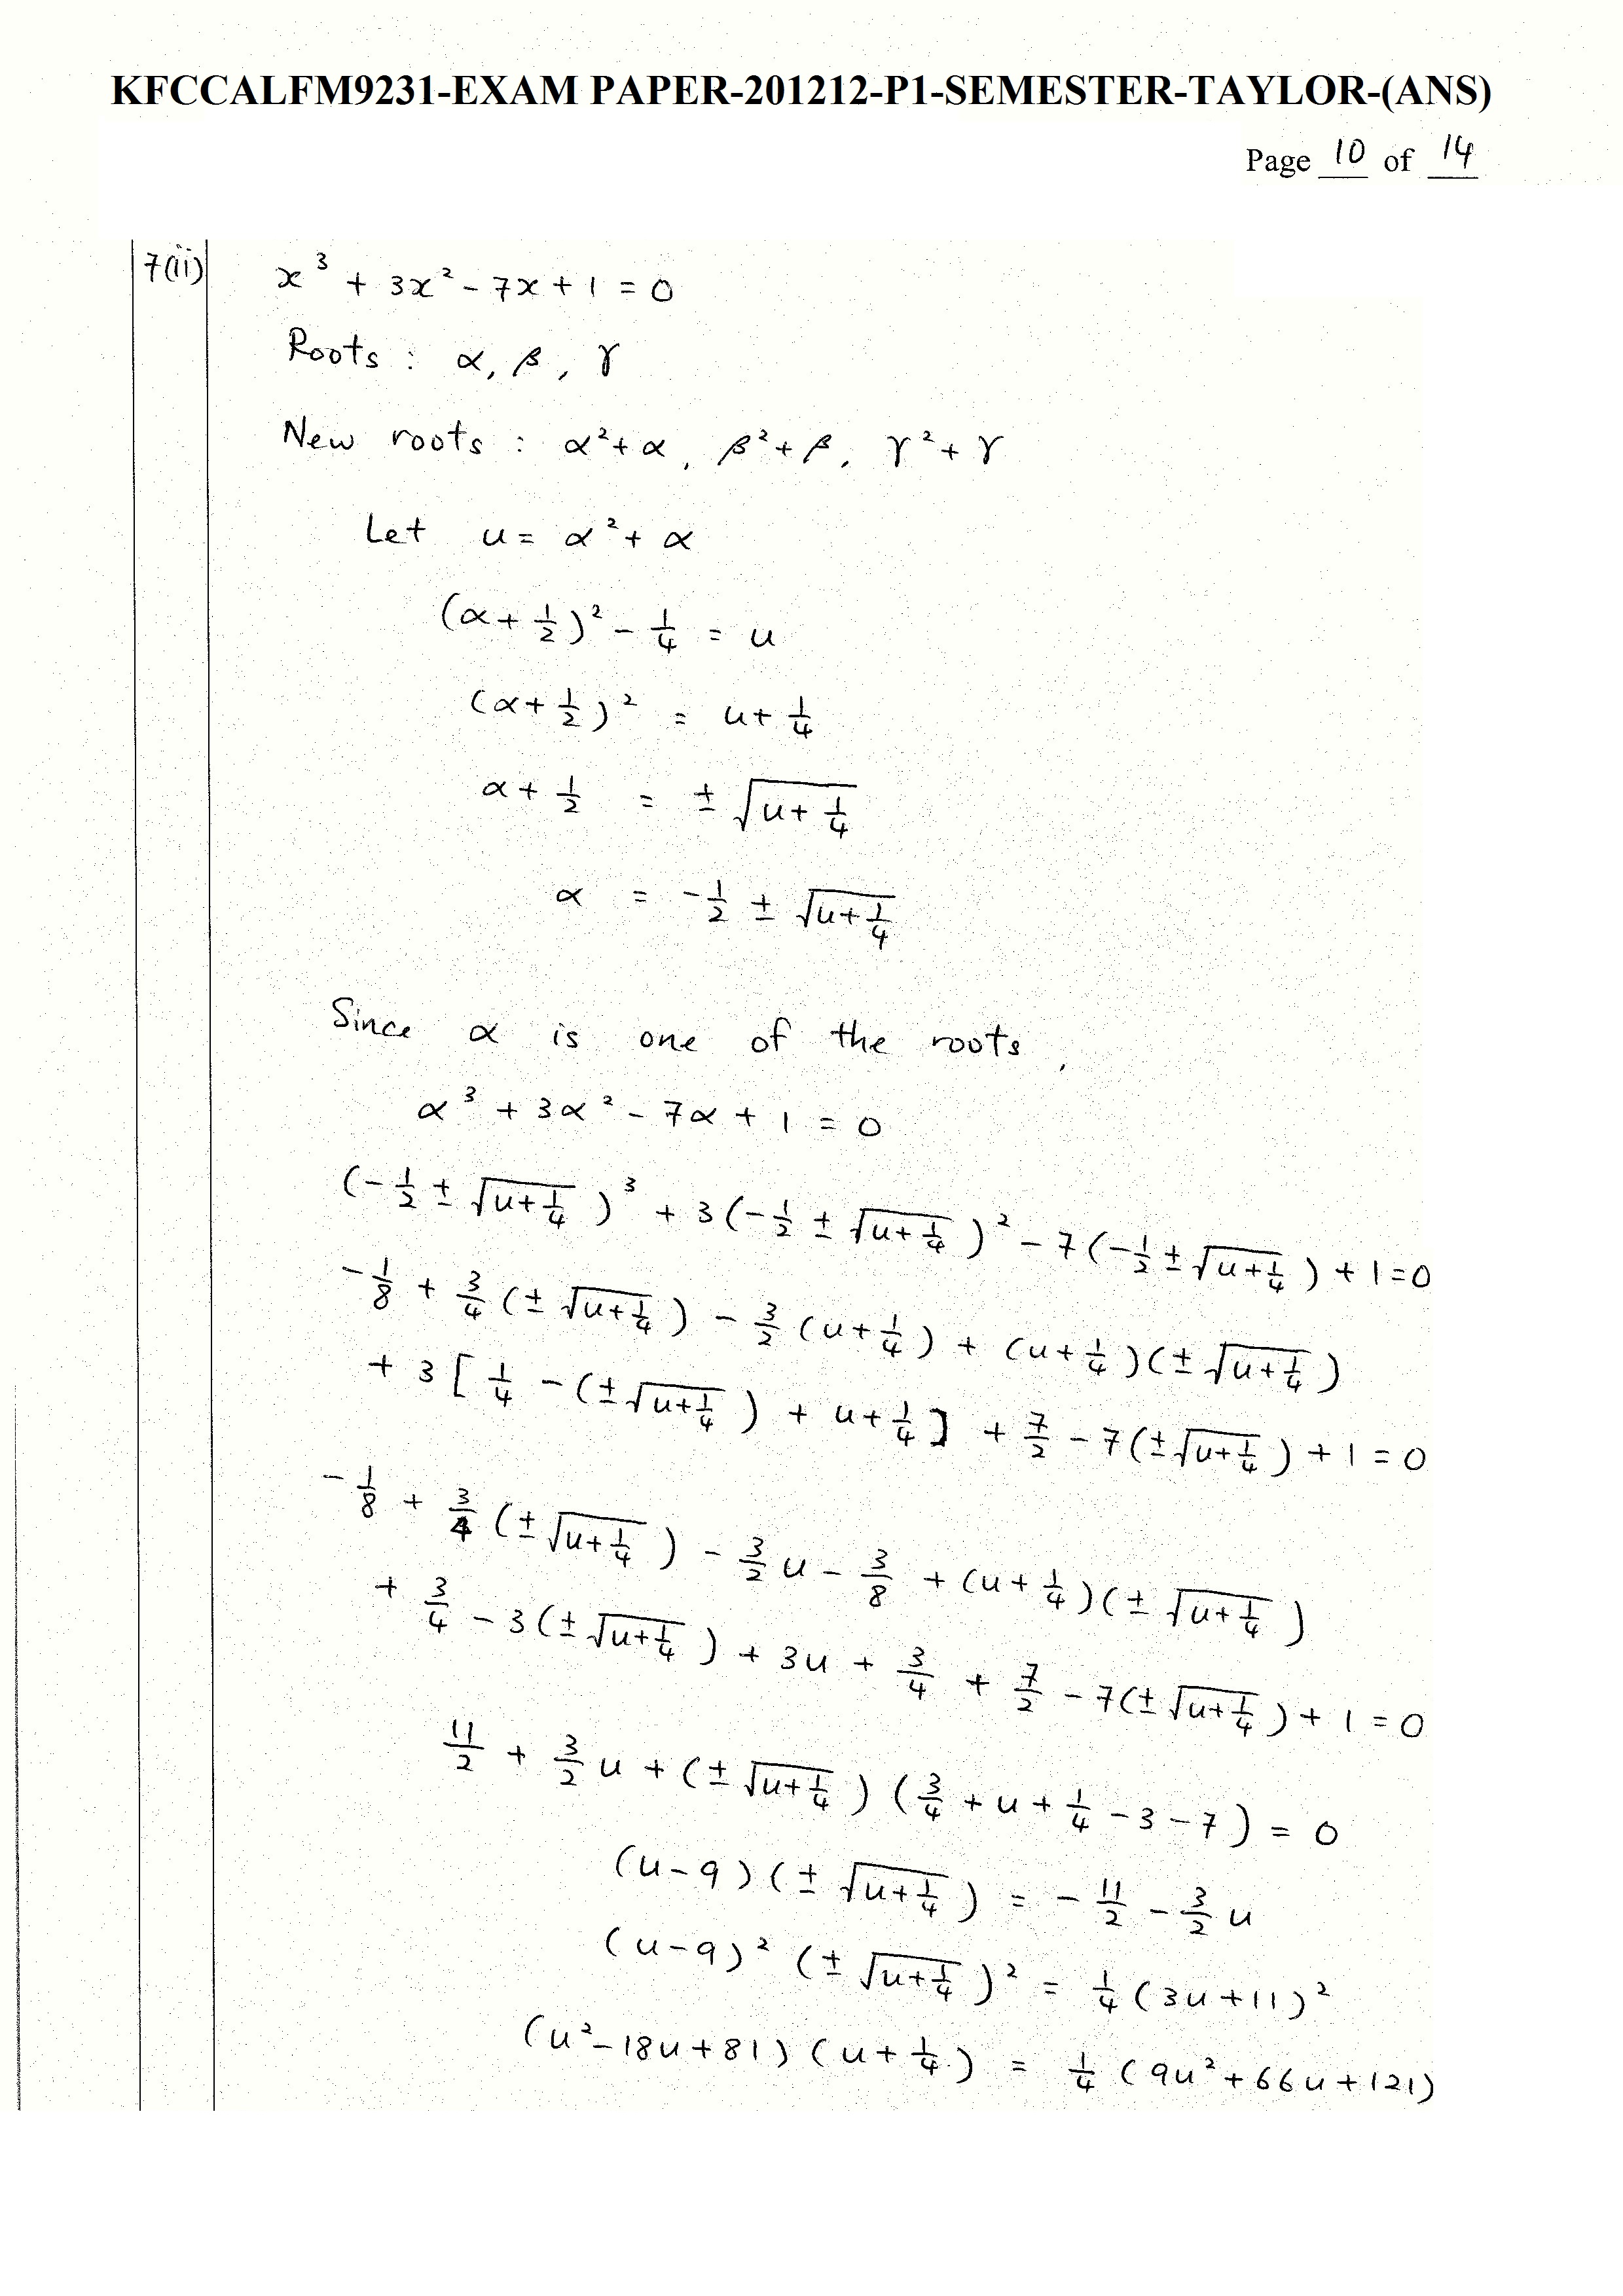 KFCCALFM9231-EXAM PAPER-201212-P1-SEMESTER-TAYLOR-(ANS)
Page 10 of 14
7(ii) x³ + 3x² - 7x + 1 = 0
Roots : α, β, γ
New roots : α²+α, β²+β, γ²+γ
Let u = α² + α
(α + 1/2)² - 1/4 = u
(α + 1/2)² = u + 1/4
α + 1/2 = ± √(u + 1/4)
α = -1/2 ± √(u + 1/4)
Since α is one of the roots,
α³ + 3α² - 7α + 1 = 0
(-1/2 ± √(u+1/4))³ + 3(-1/2 ± √(u+1/4))² - 7(-1/2 ± √(u+1/4)) + 1 = 0
-1/8 + 3/4(± √(u+1/4)) - 3/2(u+1/4) + (u+1/4)(± √(u+1/4))
+ 3[1/4 - (± √(u+1/4)) + u + 1/4] + 7/2 - 7(± √(u+1/4)) + 1 = 0
-1/8 + 3/4(± √(u+1/4)) - 3/2 u - 3/8 + (u+1/4)(± √(u+1/4))
+ 3/4 - 3(± √(u+1/4)) + 3u + 3/4 + 7/2 - 7(± √(u+1/4)) + 1 = 0
11/2 + 3/2 u + (± √(u+1/4))(3/4 + u + 1/4 - 3 - 7) = 0
(u-9)(± √(u+1/4)) = -11/2 - 3/2 u
(u-9)²(± √(u+1/4))² = 1/4(3u+11)²
(u²-18u+81)(u+1/4) = 1/4(9u²+66u+121)